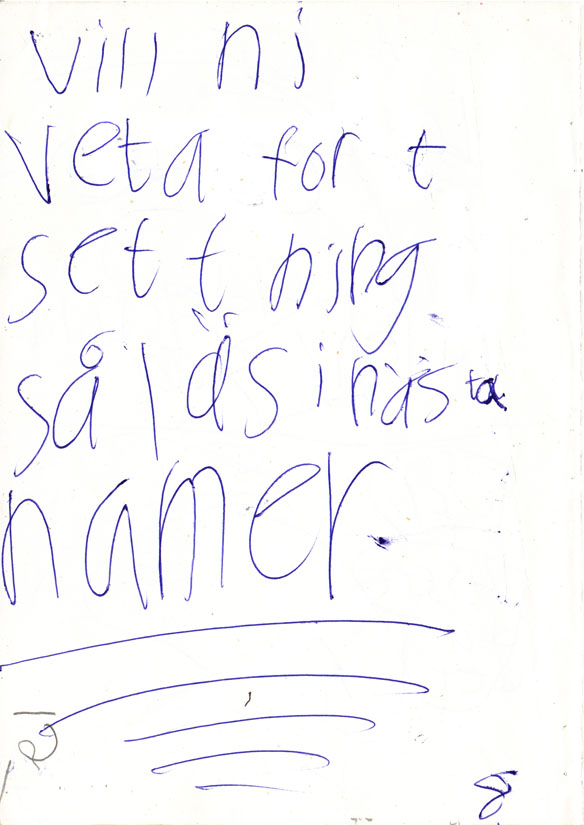 vill ni
veta for t
settning
så läs i nästa
namer.
8